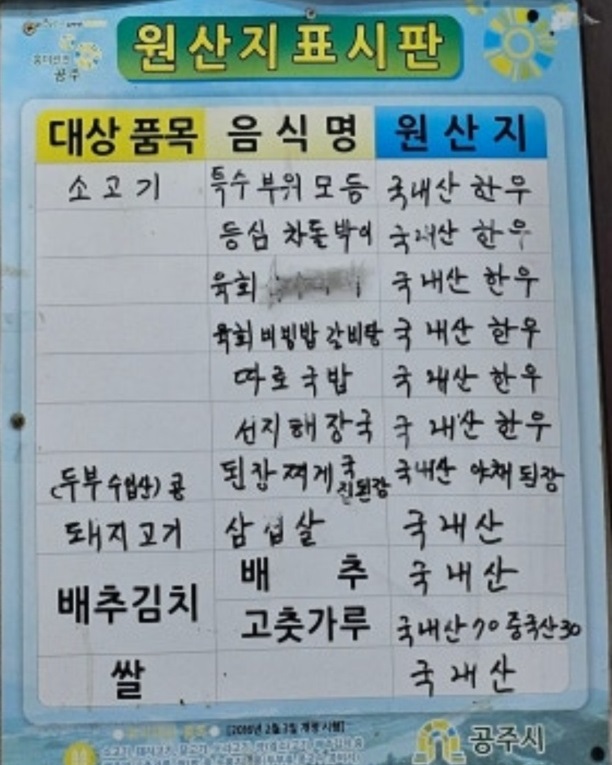 공주
원산지표시판
대상 품목 음식명 원산지
소고기 특수부위모듬 국내산 한우
등심 차돌박이 국내산 한우
육회 국내산 한우
육회비빔밥 갈비탕 국내산 한우
따로국밥 국내산 한우
선지해장국 국내산 한우
(두부 수입산) 콩 된장찌게 국내산 야채 된장
돼지고기 삼섭살 국내산
배추김치 배추 국내산
고춧가루 국내산 70 중국산30
쌀 국내산
[2016년 2월 3일 개정 시행]
공주시